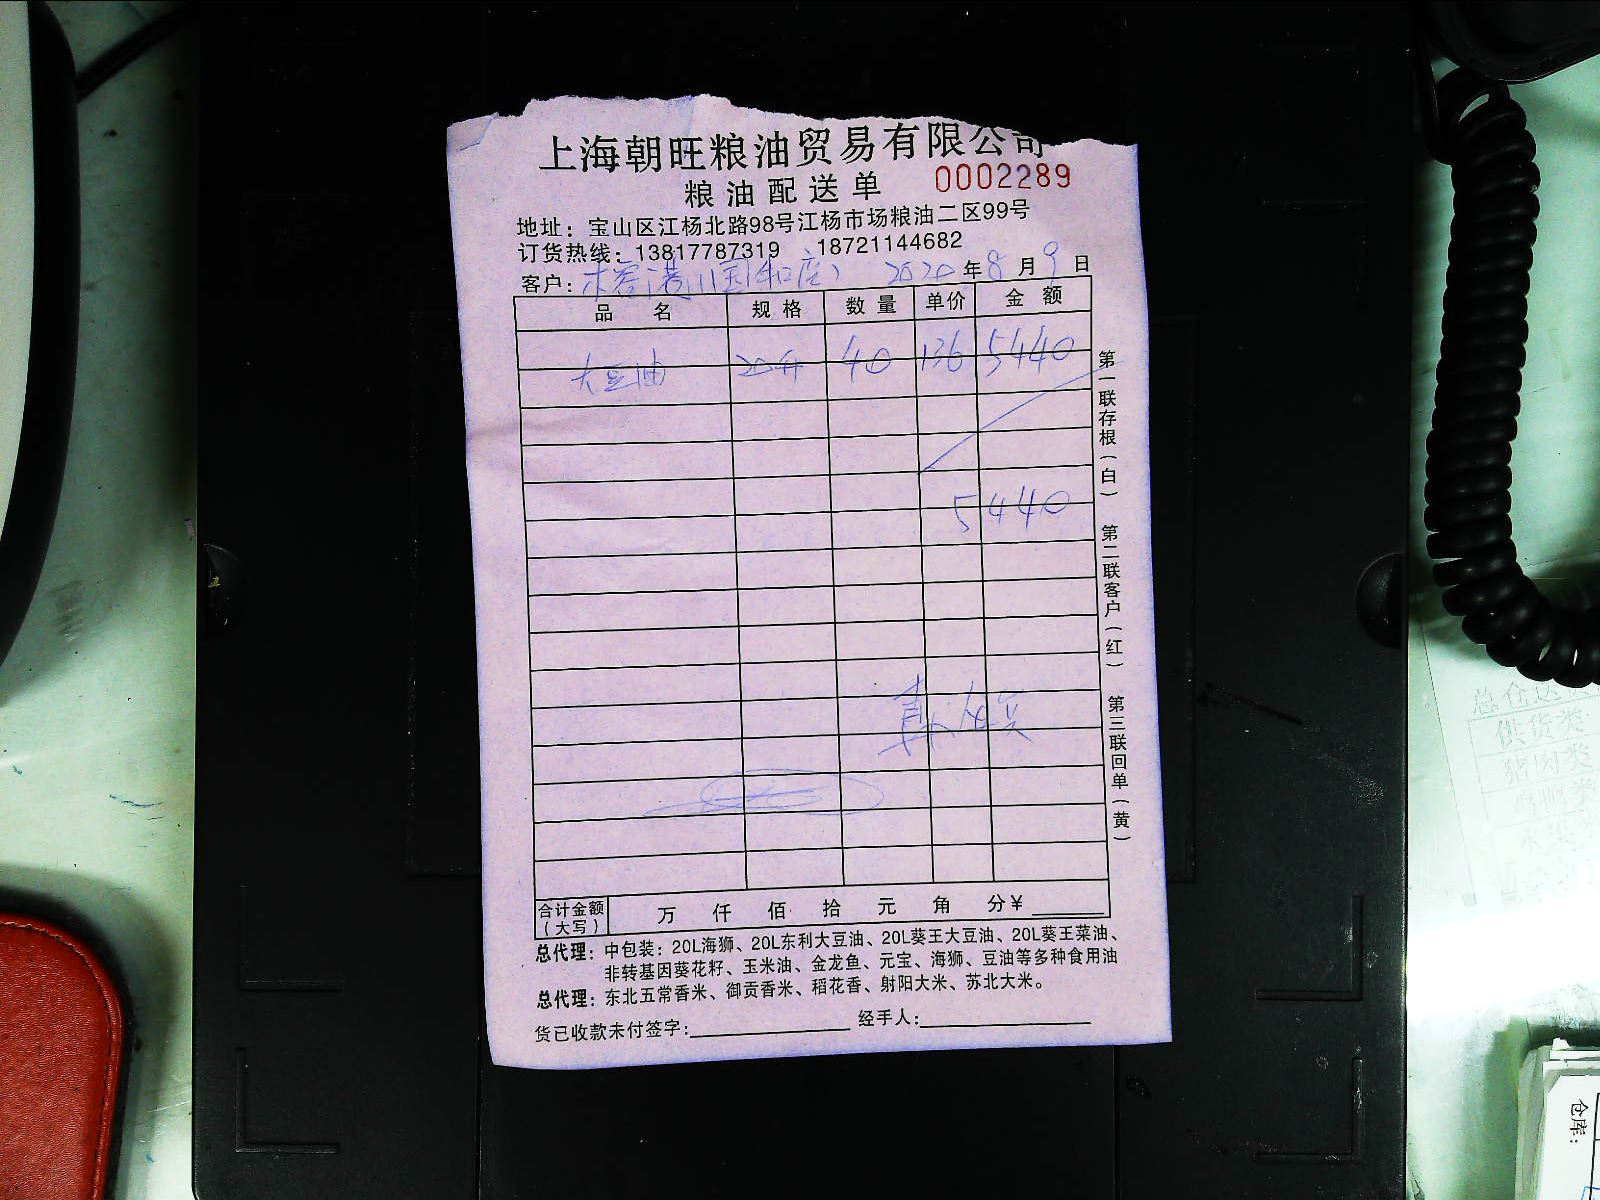 上海朝旺粮油贸易有限公司
粮油配送单 0002289
地址：宝山区江杨北路98号江杨市场粮油二区99号
订货热线：13817787319 18721144682
客户： 2020年8月9日
品名 规格 数量 单价 金额
大豆油 20升 40 136 5440
5440
合计金额（大写） 万 仟 佰 拾 元 角 分¥
总代理：中包装：20L海狮、20L东利大豆油、20L葵王大豆油、20L葵王菜油、
非转基因葵花籽、玉米油、金龙鱼、元宝、海狮、豆油等多种食用油
总代理：东北五常香米、御贡香米、稻花香、射阳大米、苏北大米。
货已收款未付签字： 经手人：
第一联存根（白） 第二联客户（红） 第三联回单（黄）
供货类
猪肉类
仓库：